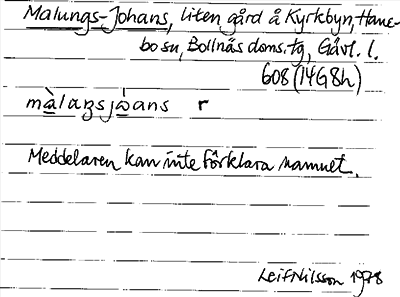 Malungs-Johans, liten gård å Kyrkbyn, Hane-
bo sn, Bollnäs doms.tg, Gävl. l.
608 (14G8h)
màlaŋsjòans r
Meddelaren kan inte förklara namnet.
Leif Nilsson 1978